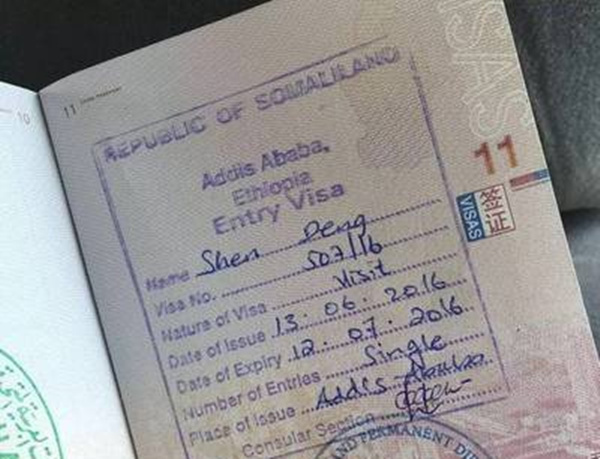 10
11
VISAS
REPUBLIC OF SOMALILAND
Addis Ababa,
Ethiopia
Entry Visa
Name Shen Deng
Visa No. 507/16
Nature of Visa Visit
Date of Issue 13.06.2016
Date of Expiry 12.07.2016
Number of Entries Single
Place of Issue Addis Ababa
Consular Section
AND PERMANENT
11
签证
VISAS